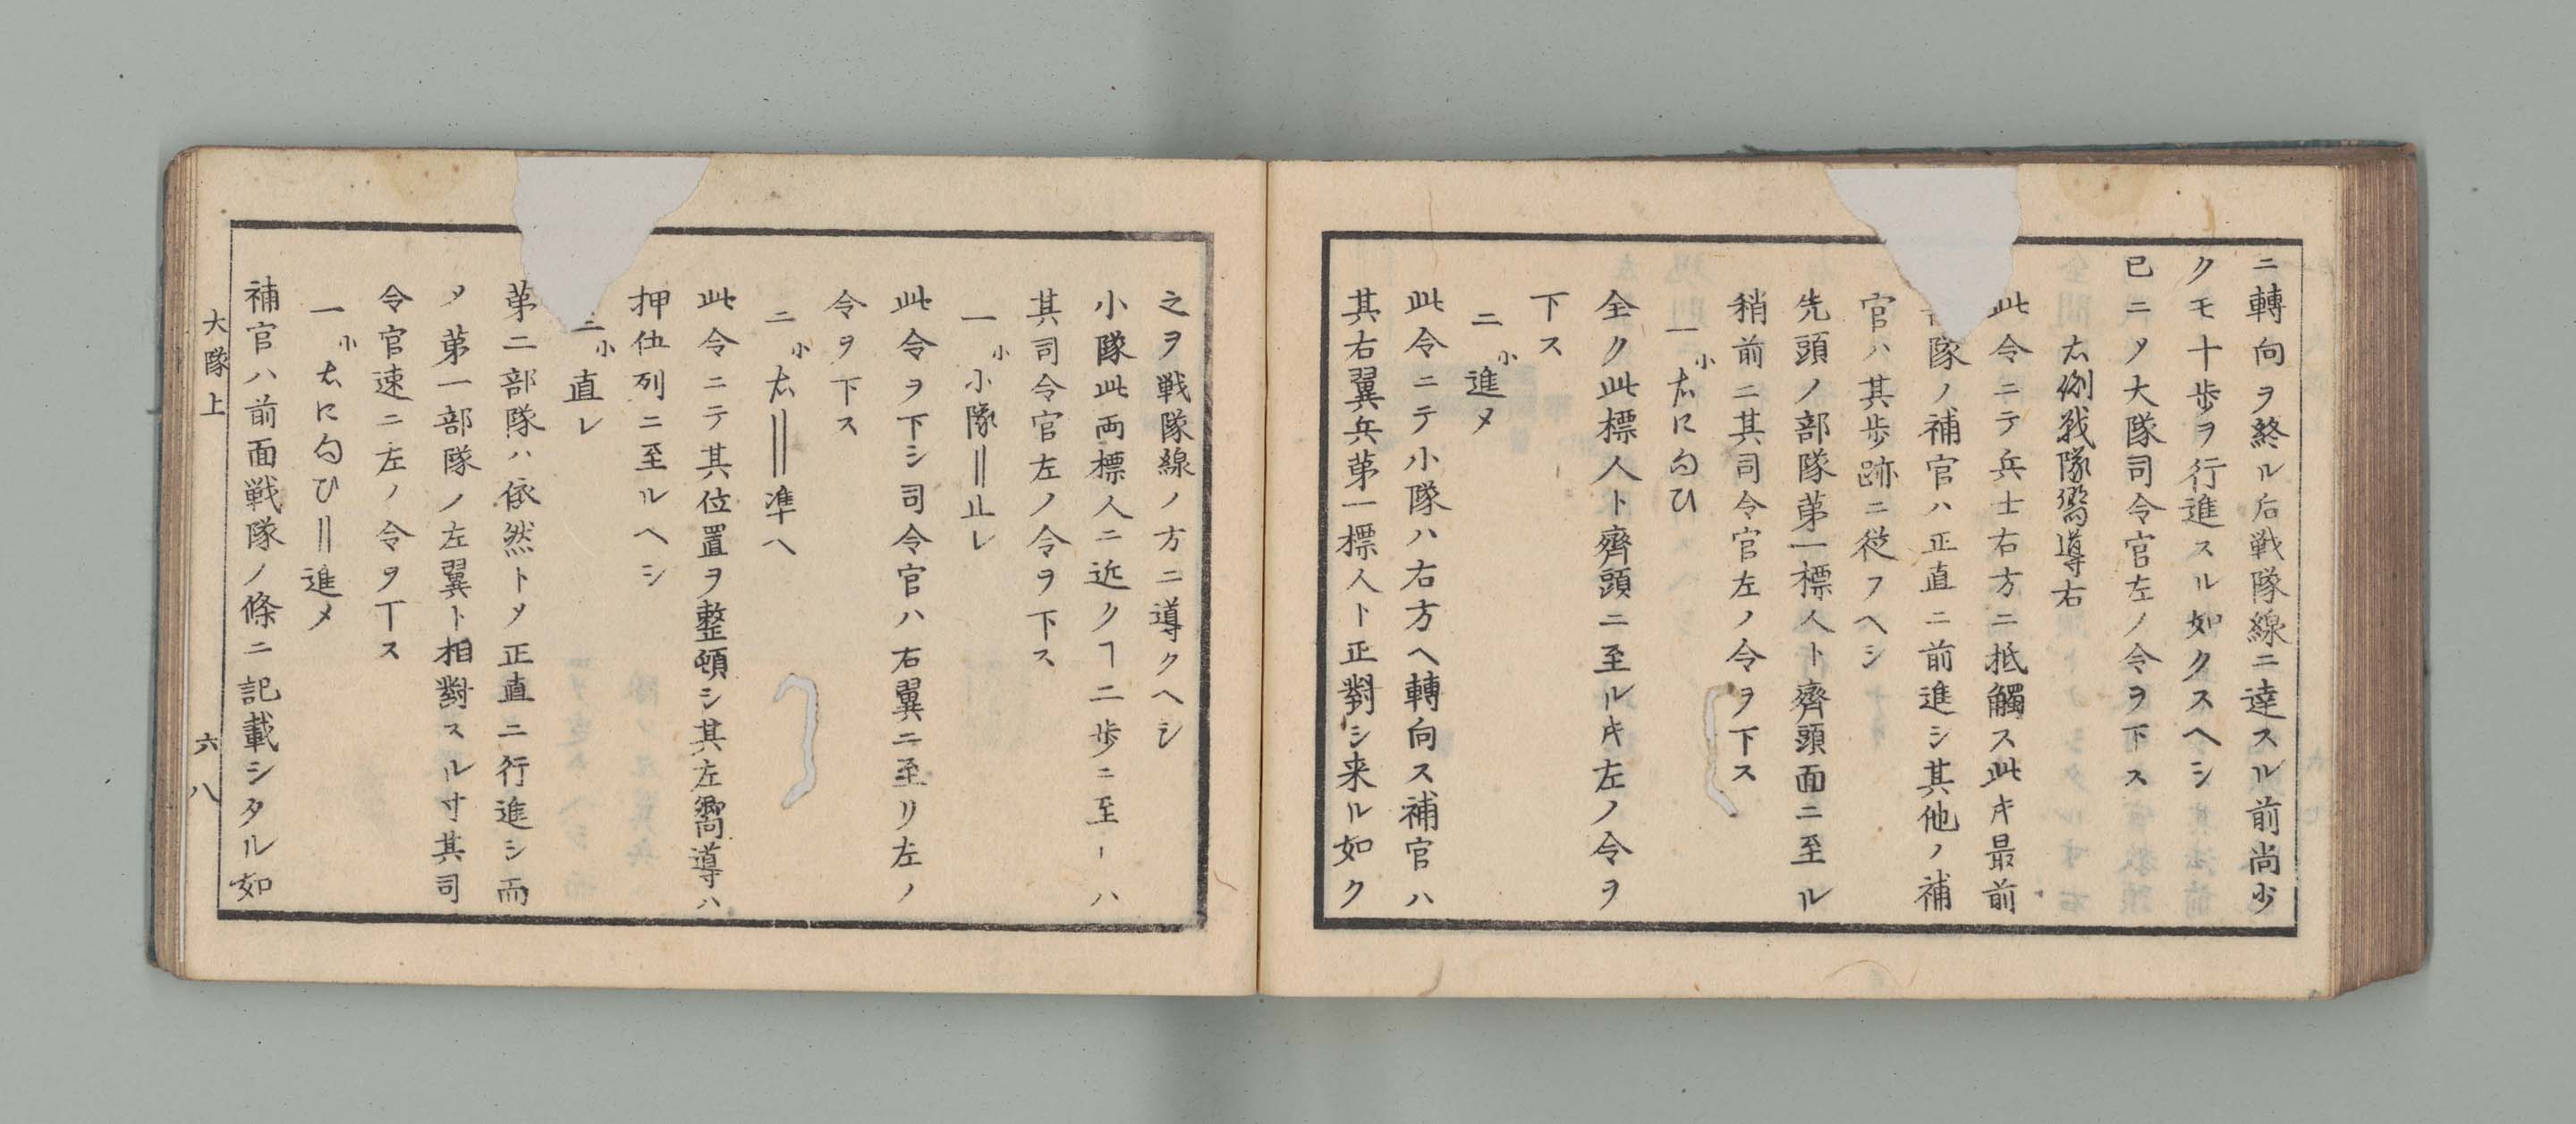 ニ轉向ヲ終ル后戦隊線ニ達スル前尚少
クモ十歩ヲ行進スル如クスヘシ
已ニ〆大隊司令官左ノ令ヲ下ス
右側戦隊嚮導右
此令ニテ兵士右方ニ抵觸ス此キ最前
隊ノ補官ハ正直ニ前進シ其他ノ補
官ハ其歩跡ニ従フヘシ
先頭ノ部隊苐一標人ト齊頭面ニ至ル
稍前ニ其司令官左ノ令ヲ下ス
一小右に匂ひ
全ク此標人ト齊頭ニ至ルキ左ノ令ヲ
下ス
二小進メ
此令ニテ小隊ハ右方ヘ轉向ス補官ハ
其右翼兵苐一標人ト正對シ来ル如ク
之ヲ戦隊線ノ方ニ導クヘシ
小隊此両標人ニ近クヿ二歩ニ至ーハ
其司令官左ノ令ヲ下ス
一小小隊‖止レ
此令ヲ下シ司令官ハ右翼ニ至リ左ノ
令ヲ下ス
二小右‖準ヘ
此令ニテ其位置ヲ整頓シ其左嚮導ハ
押伍列ニ至ルヘシ
三小直レ
苐二部隊ハ依然ト〆正直ニ行進シ而
〆苐一部隊ノ左翼ト相對スル寸其司
令官速ニ左ノ令ヲ下ス
一小右に匂ひ‖進メ
補官ハ前面戦隊ノ條ニ記載シタル如
大隊上　六八